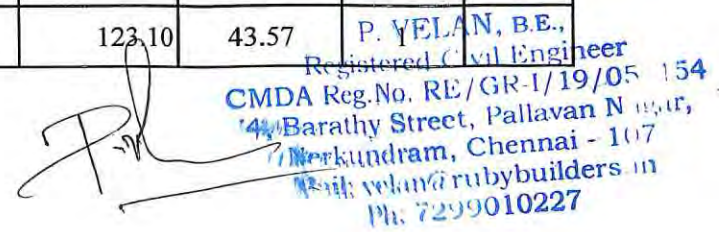 123.10 43.57 1
P. VELAN, B.E.,
Registered Civil Engineer
CMDA Reg.No. RE/GR-I/19/05 154
Barathy Street, Pallavan Nagar,
Nerkundram, Chennai - 107
velan@rubybuilders.in
Ph: 7299010227